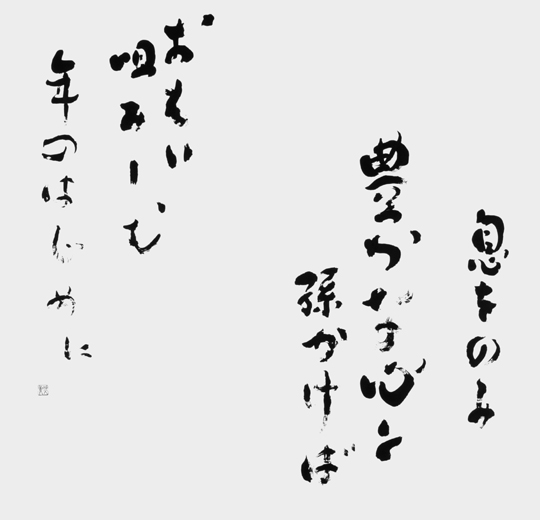 息をのみ
豊かなる心と
孫かけば
おもい
咀みしむ
年のはじめに